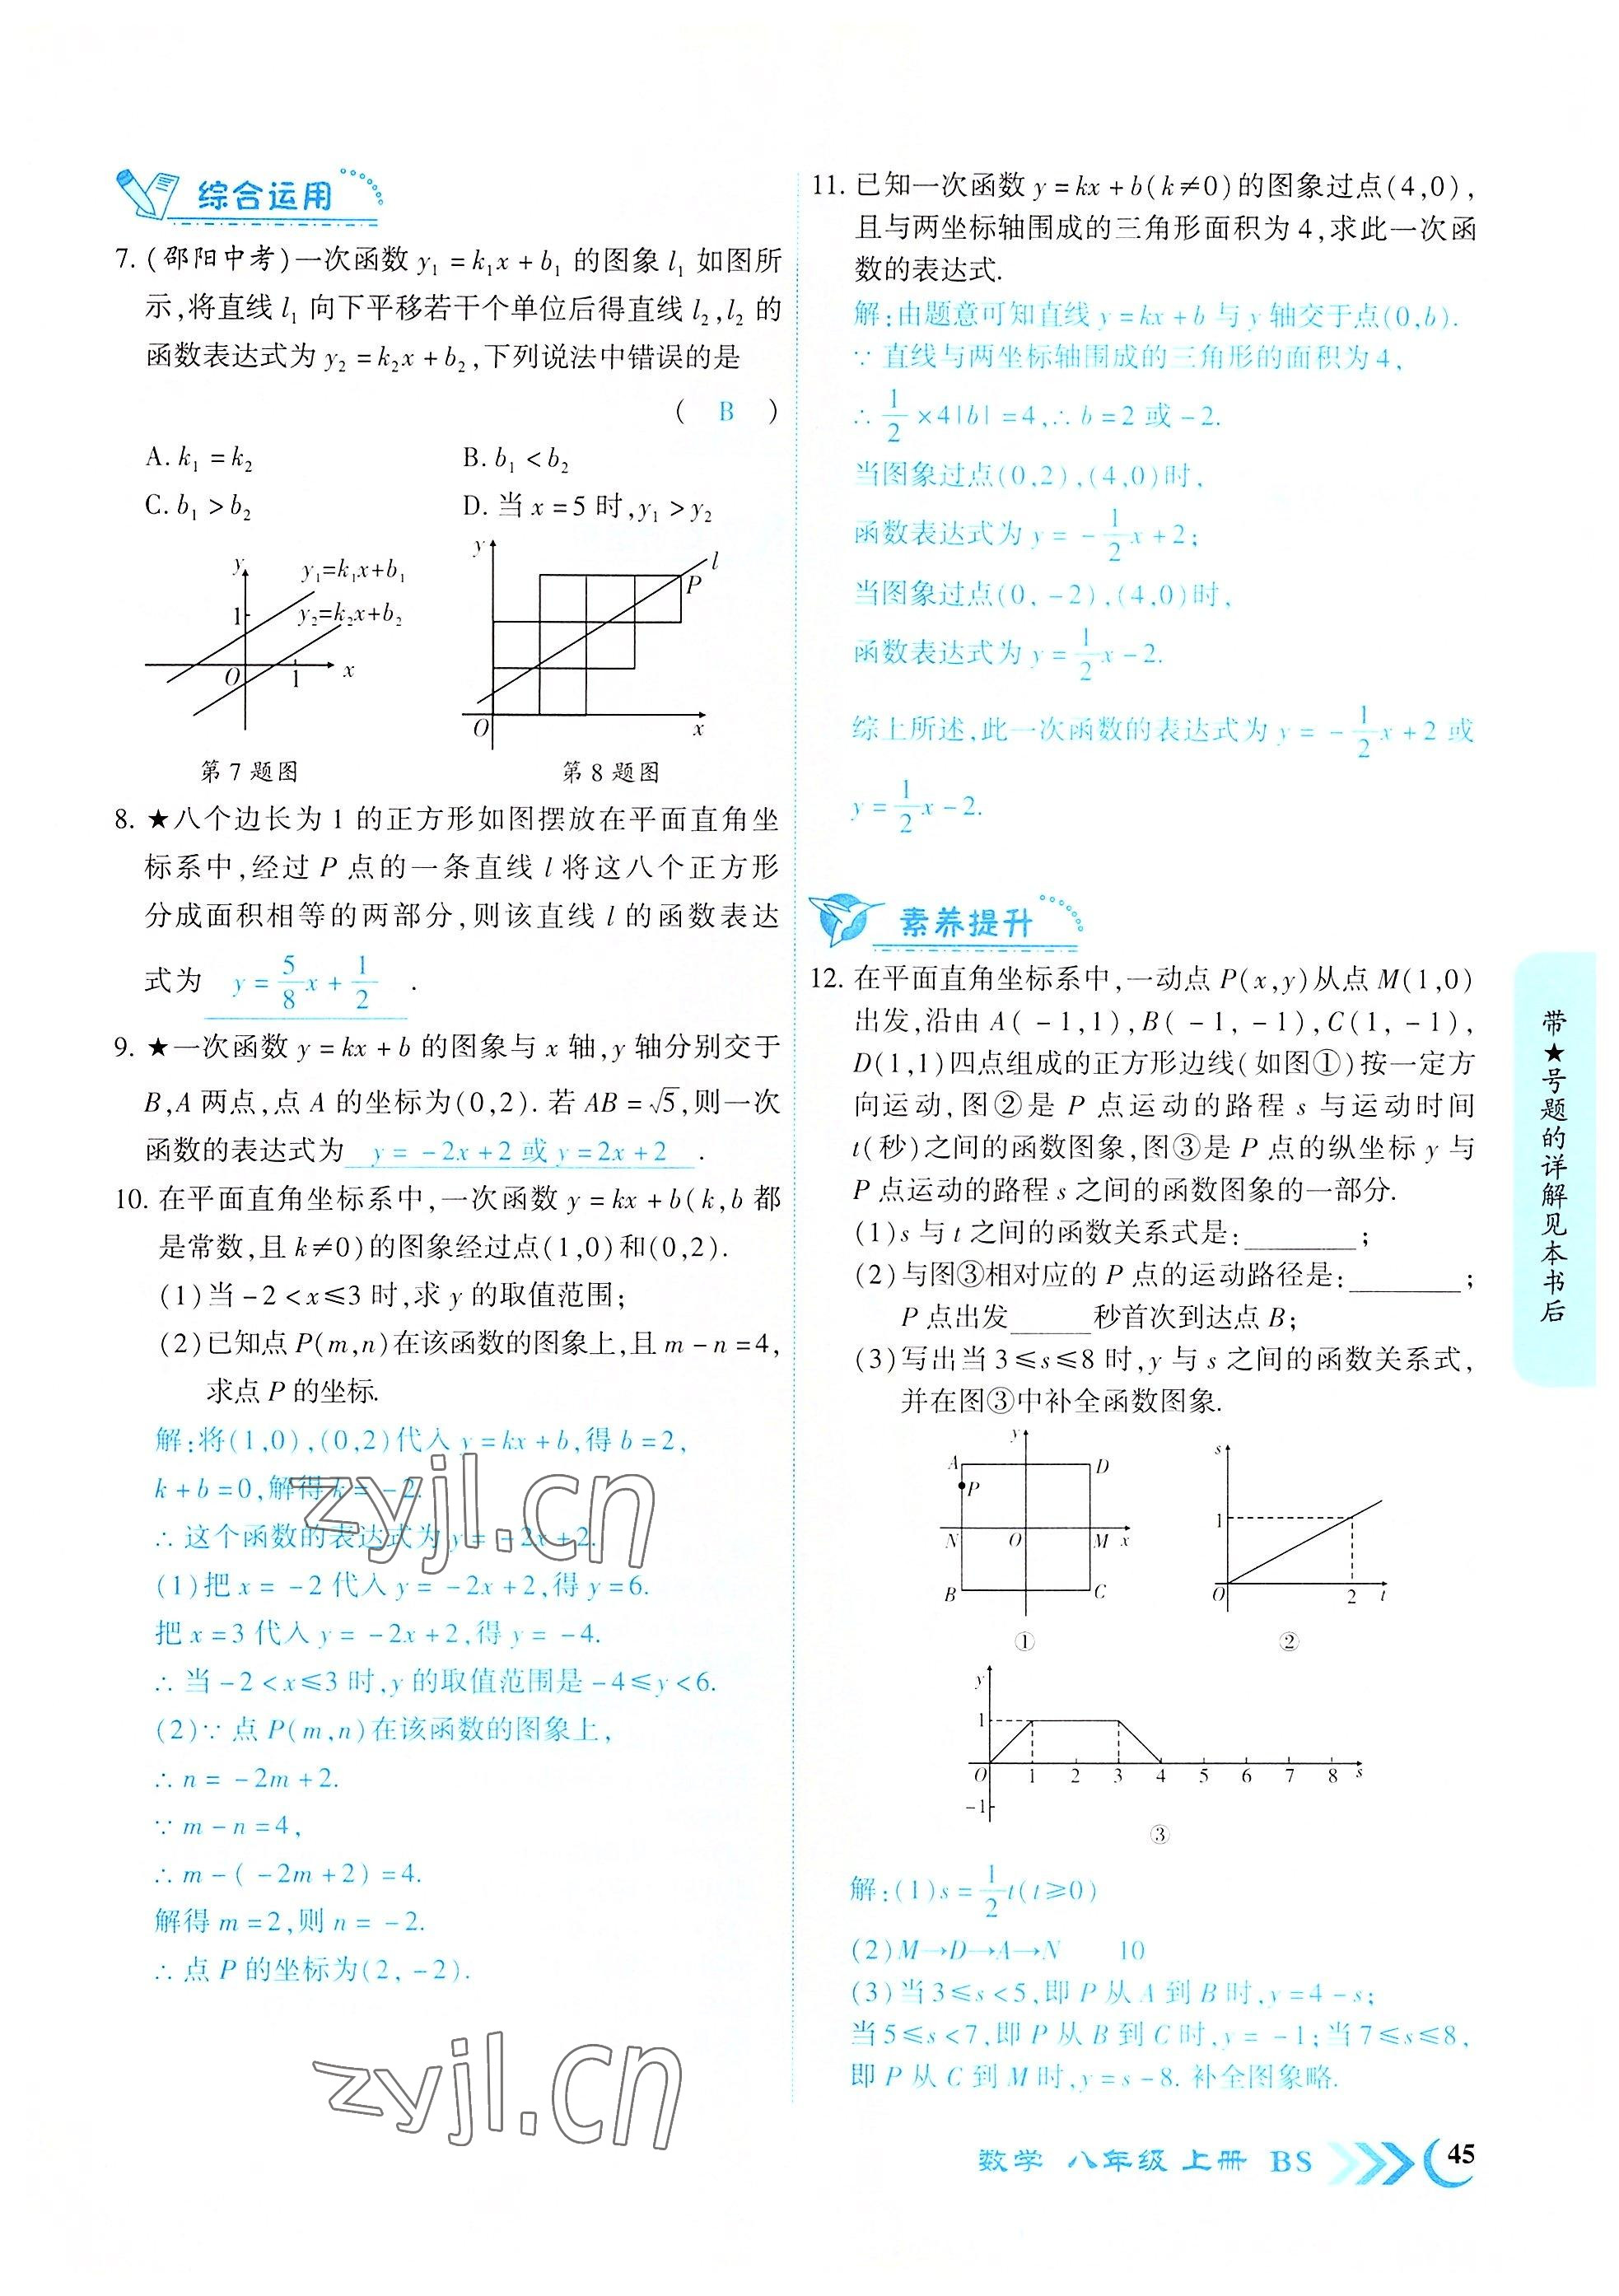 综合运用
7. (邵阳中考)一次函数 y₁ = k₁x + b₁ 的图象 l₁ 如图所
示,将直线 l₁ 向下平移若干个单位后得直线 l₂,l₂ 的
函数表达式为 y₂ = k₂x + b₂,下列说法中错误的是
( B )
A. k₁ = k₂ B. b₁ < b₂
C. b₁ > b₂ D. 当 x = 5 时,y₁ > y₂
y
y₁=k₁x+b₁
1
y₂=k₂x+b₂
O 1 x
第 7 题图
y l
P
O x
第 8 题图
8. ★八个边长为 1 的正方形如图摆放在平面直角坐
标系中,经过 P 点的一条直线 l 将这八个正方形
分成面积相等的两部分,则该直线 l 的函数表达
式为 y = 5/8 x + 1/2 .
9. ★一次函数 y = kx + b 的图象与 x 轴,y 轴分别交于
B,A 两点,点 A 的坐标为(0,2). 若 AB = √5,则一次
函数的表达式为 y = -2x + 2 或 y = 2x + 2 .
10. 在平面直角坐标系中,一次函数 y = kx + b(k,b 都
是常数,且 k≠0)的图象经过点(1,0)和(0,2).
(1)当 -2 < x ≤ 3 时,求 y 的取值范围;
(2)已知点 P(m,n)在该函数的图象上,且 m - n = 4,
求点 P 的坐标.
解:将(1,0),(0,2)代入 y = kx + b,得 b = 2,
k + b = 0,解得 k = -2.
∴ 这个函数的表达式为 y = -2x + 2.
(1)把 x = -2 代入 y = -2x + 2,得 y = 6.
把 x = 3 代入 y = -2x + 2,得 y = -4.
∴ 当 -2 < x ≤ 3 时,y 的取值范围是 -4 ≤ y < 6.
(2)∵ 点 P(m,n)在该函数的图象上,
∴ n = -2m + 2.
∵ m - n = 4,
∴ m - ( -2m + 2) = 4.
解得 m = 2,则 n = -2.
∴ 点 P 的坐标为(2, -2).
zyjl.cn
zyjl.cn
11. 已知一次函数 y = kx + b(k≠0)的图象过点(4,0),
且与两坐标轴围成的三角形面积为 4,求此一次函
数的表达式.
解:由题意可知直线 y = kx + b 与 y 轴交于点(0,b).
∵ 直线与两坐标轴围成的三角形的面积为 4,
∴ 1/2 × 4|b| = 4,∴ b = 2 或 -2.
当图象过点(0,2),(4,0)时,
函数表达式为 y = - 1/2 x + 2;
当图象过点(0, -2),(4,0)时,
函数表达式为 y = 1/2 x - 2.
综上所述,此一次函数的表达式为 y = - 1/2 x + 2 或
y = 1/2 x - 2.
素养提升
12. 在平面直角坐标系中,一动点 P(x,y)从点 M(1,0)
出发,沿由 A( -1,1),B( -1, -1),C(1, -1),
D(1,1)四点组成的正方形边线(如图①)按一定方
向运动,图②是 P 点运动的路程 s 与运动时间
t(秒)之间的函数图象,图③是 P 点的纵坐标 y 与
P 点运动的路程 s 之间的函数图象的一部分.
(1)s 与 t 之间的函数关系式是:________;
(2)与图③相对应的 P 点的运动路径是:________;
P 点出发______秒首次到达点 B;
(3)写出当 3 ≤ s ≤ 8 时,y 与 s 之间的函数关系式,
并在图③中补全函数图象.
y
A D
P
N O M x
B C
①
s
1
O 2 t
②
y
1
O 1 2 3 4 5 6 7 8 s
-1
③
解:(1)s = 1/2 t(t ≥ 0)
(2)M→D→A→N 10
(3)当 3 ≤ s < 5,即 P 从 A 到 B 时,y = 4 - s;
当 5 ≤ s < 7,即 P 从 B 到 C 时,y = -1;当 7 ≤ s ≤ 8,
即 P 从 C 到 M 时,y = s - 8. 补全图象略.
带★号题的详解见本书后
数学 八年级 上册 BS 45